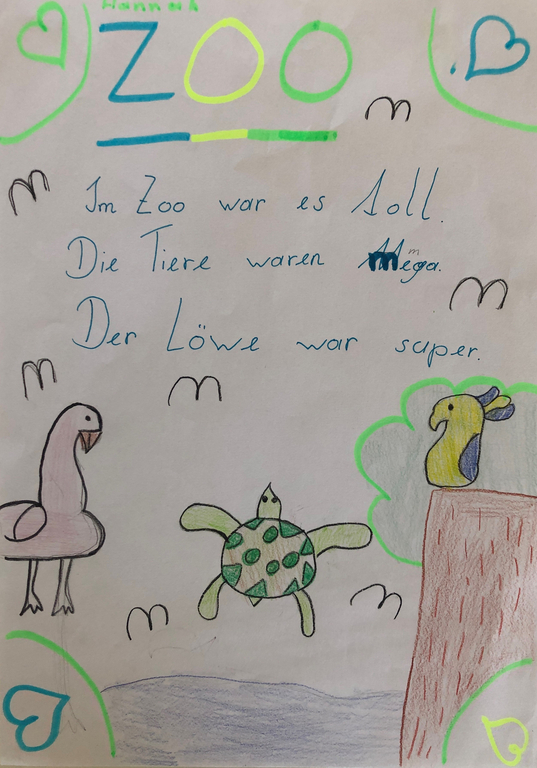 Hannah
ZOO
Im Zoo war es toll.
Die Tiere waren Mega.
Der Löwe war super.